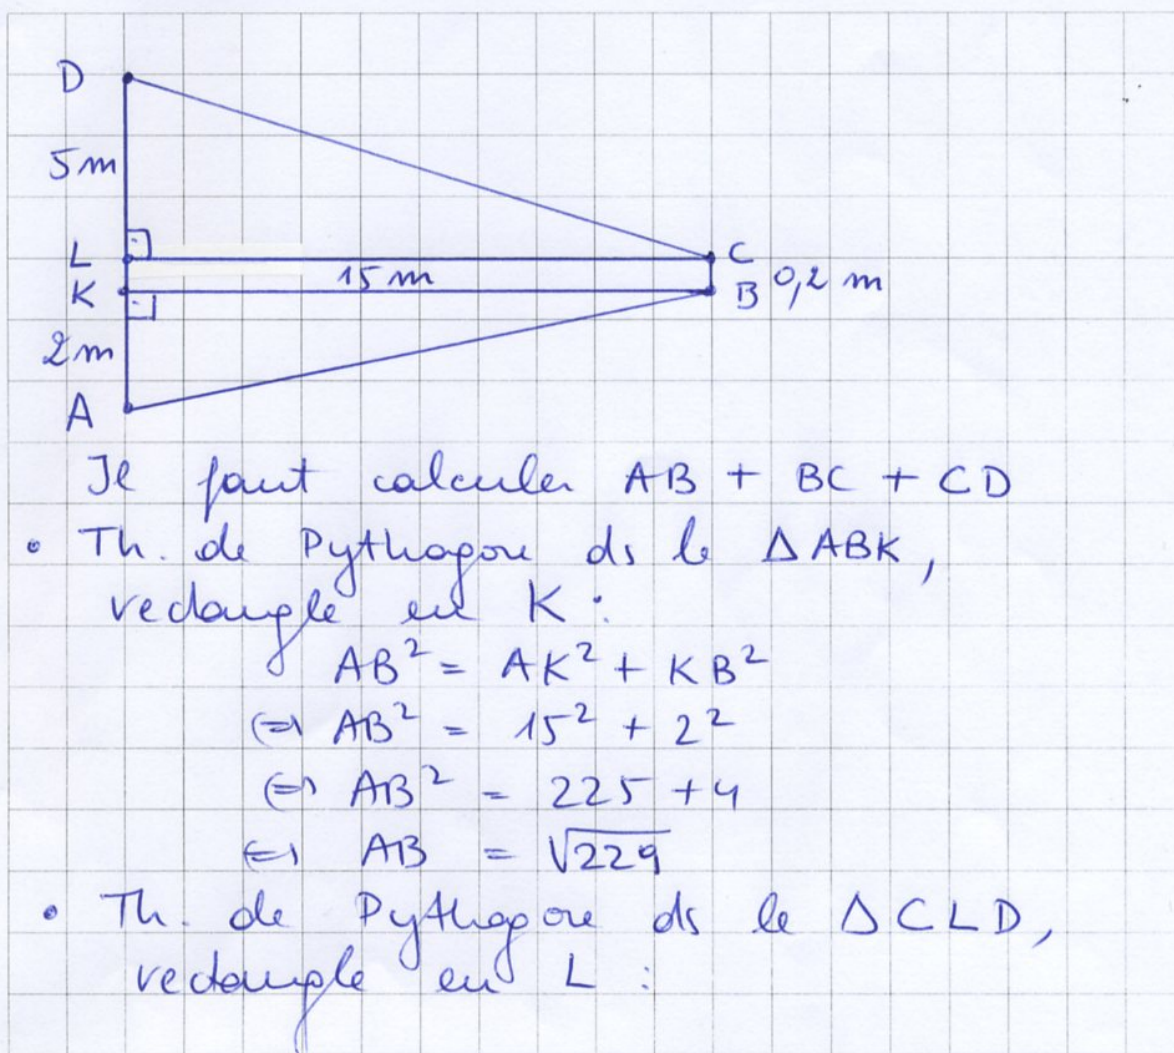 D
5m
L C
15m
K B 0,2 m
2m
A
Il faut calculer AB + BC + CD
• Th. de Pythagore ds le ΔABK,
rectangle en K :
AB² = AK² + KB²
⇔ AB² = 15² + 2²
⇔ AB² = 225 + 4
⇔ AB = √229
• Th. de Pythagore ds le ΔCLD,
rectangle en L :